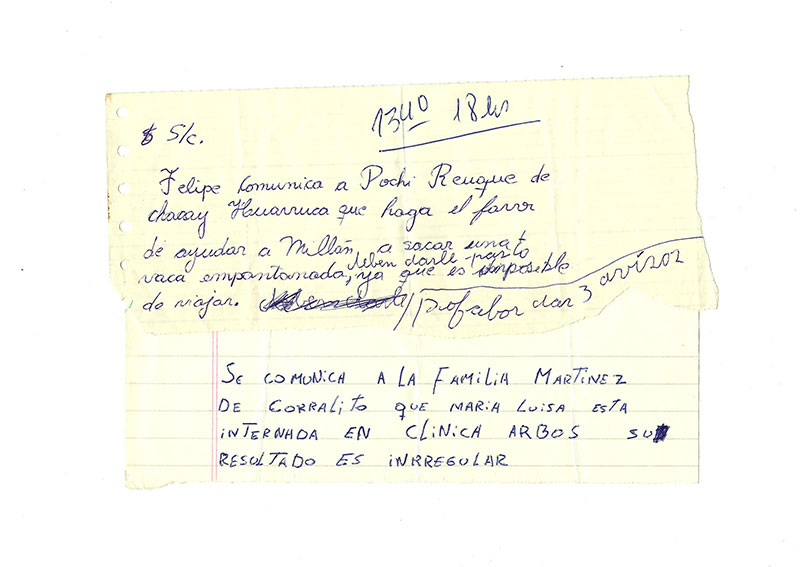 1340 18 hs
$ S/c.
Felipe comunica a Pochi Reuque de
chacay Huarruca que haga el favor
de ayudar a Millán, a sacar una
deben darle pasto
vaca empantanada, ya que es imposible
do viajar.
porfabor dar 3 avizos
SE COMUNICA A LA FAMILIA MARTINEZ
DE CORRALITO QUE MARIA LUISA ESTA
INTERNADA EN CLINICA ARBOS SU
RESULTADO ES INRREGULAR